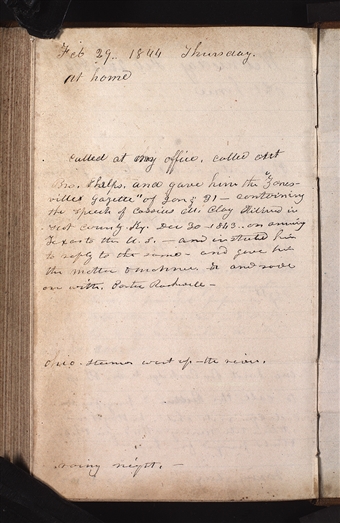 Feb 29. 1844 Thursday.
at home
called at my office. called out
Bro. Phelps. and gave him the "Zanes-
ville Gazette" of Jan 31 — containing
the speech of Cassius M. Clay
County Ky. Dec 30 1843. on
Texas to the U. S. — and instructed him
to reply to the same — and gave him
the matter and rode
out with. Porter Rockwell —
Ohio. steamer went up the river.
rainy night. —